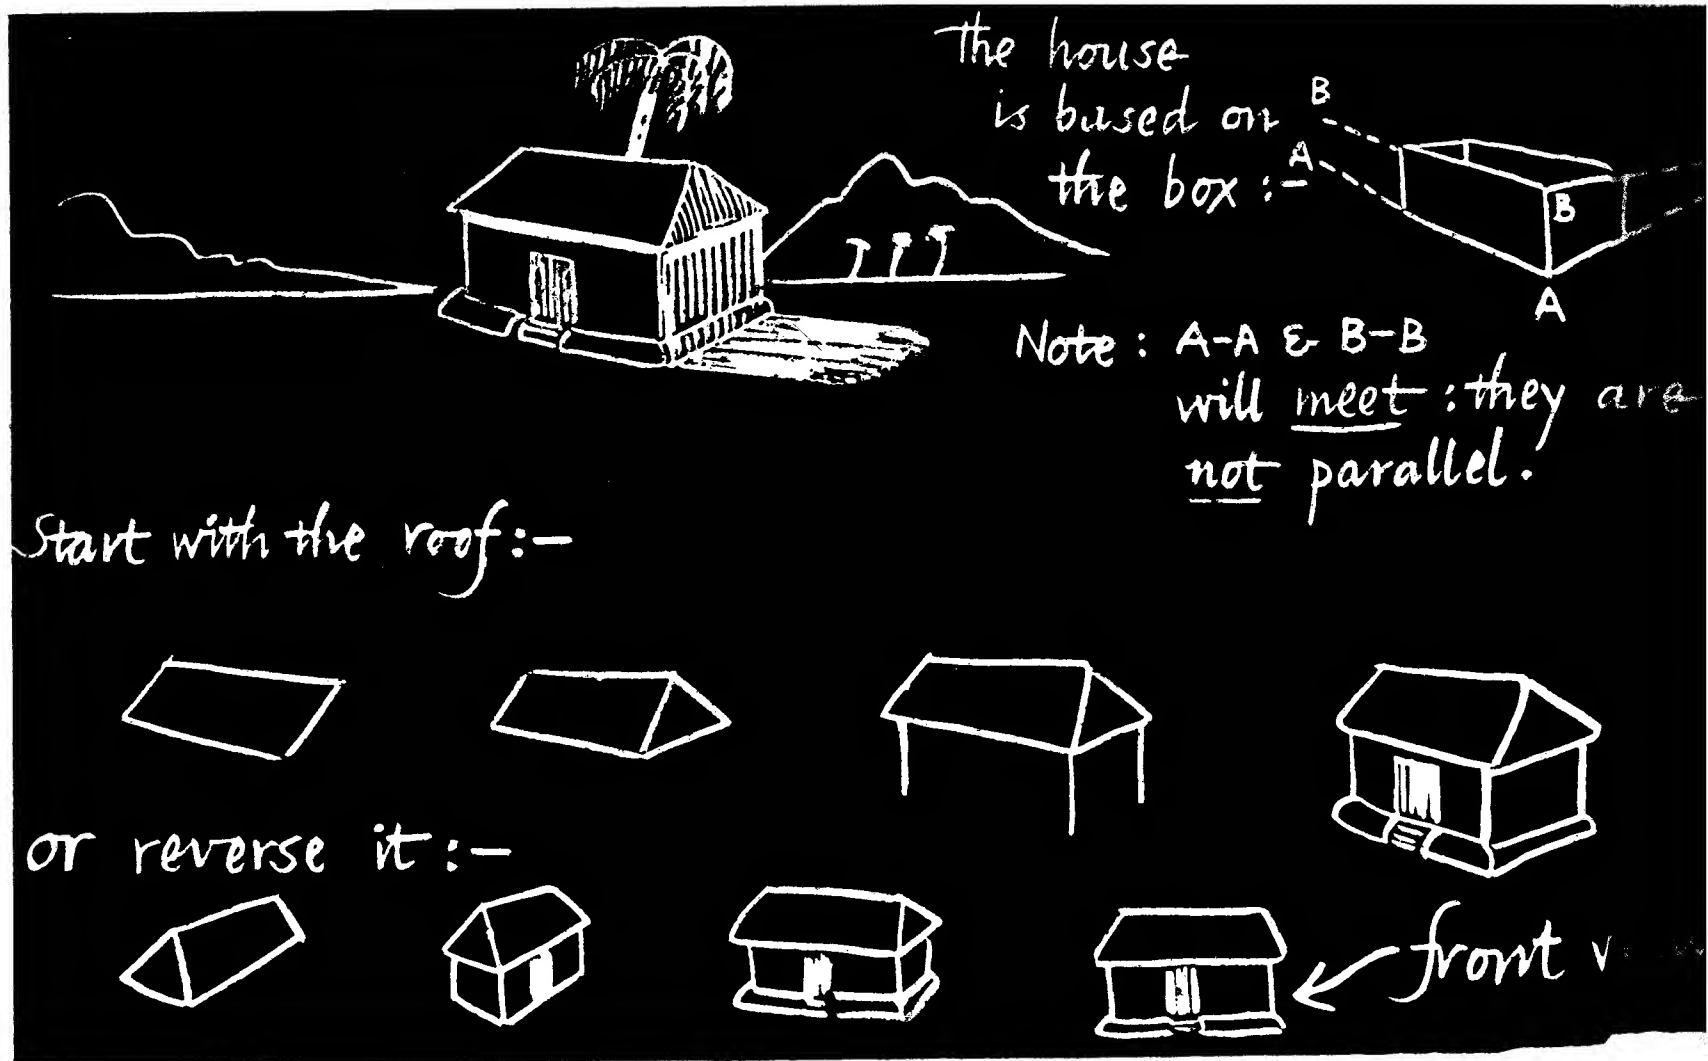 The house
is based on
the box :-
B
A
B
A
Note : A-A & B-B
will meet : they are
not parallel.
Start with the roof :-
or reverse it :-
front